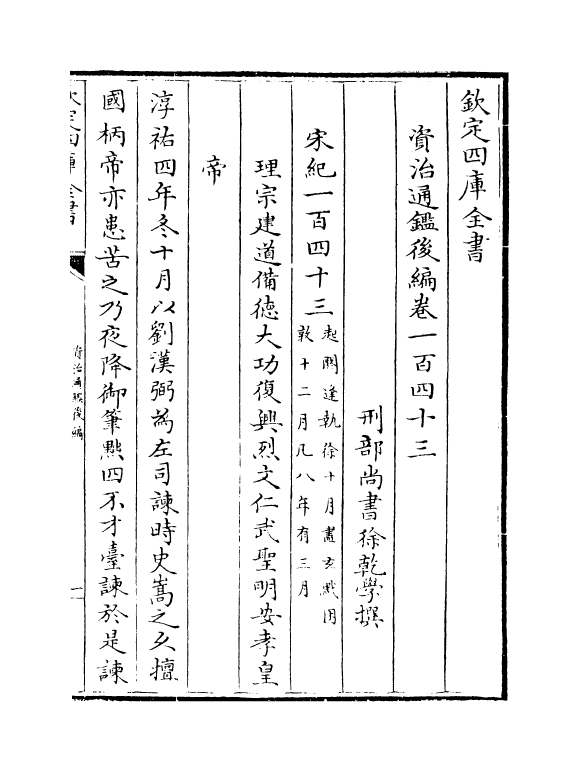 欽定四庫全書
資治通鑑後編卷一百四十三
刑部尚書徐乾學撰
宋紀一百四十三起閼逢執徐十月盡玄黓困敦十二月凡八年有三月
理宗建道備德大功復興烈文仁武聖明安孝皇
帝
淳祐四年冬十月以劉漢弼為左司諫時史嵩之久擅
國柄帝亦患苦之乃夜降御筆黜四不才臺諫於是諫
欽定四庫全書
資治通鑑後編
一